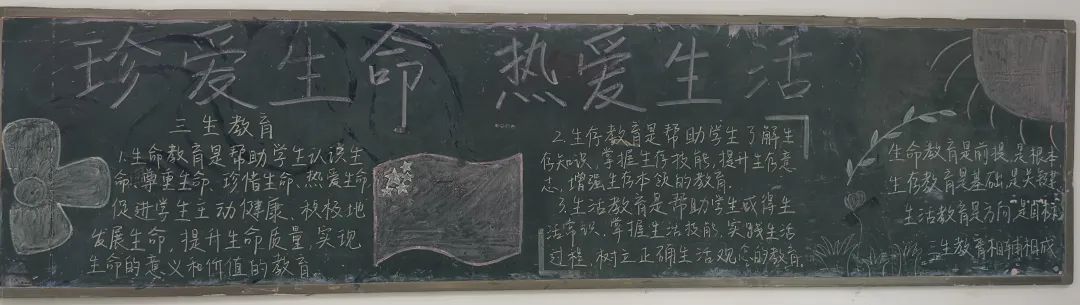 珍爱生命 热爱生活
三生教育
1.生命教育是帮助学生认识生
命、尊重生命、珍惜生命、热爱生命
促进学生主动健康、积极地
发展生命,提升生命质量,实现
生命的意义和价值的教育.
2.生存教育是帮助学生了解生
存知识,掌握生存技能,提升生存意
志,增强生存本领的教育.
3.生活教育是帮助学生或得生
活常识,掌握生活技能,实践生活
过程,树立正确生活观念的教育.
生命教育是前提,是根本
生存教育是基础,是关键
生活教育是方向,是目标
三生教育相辅相成